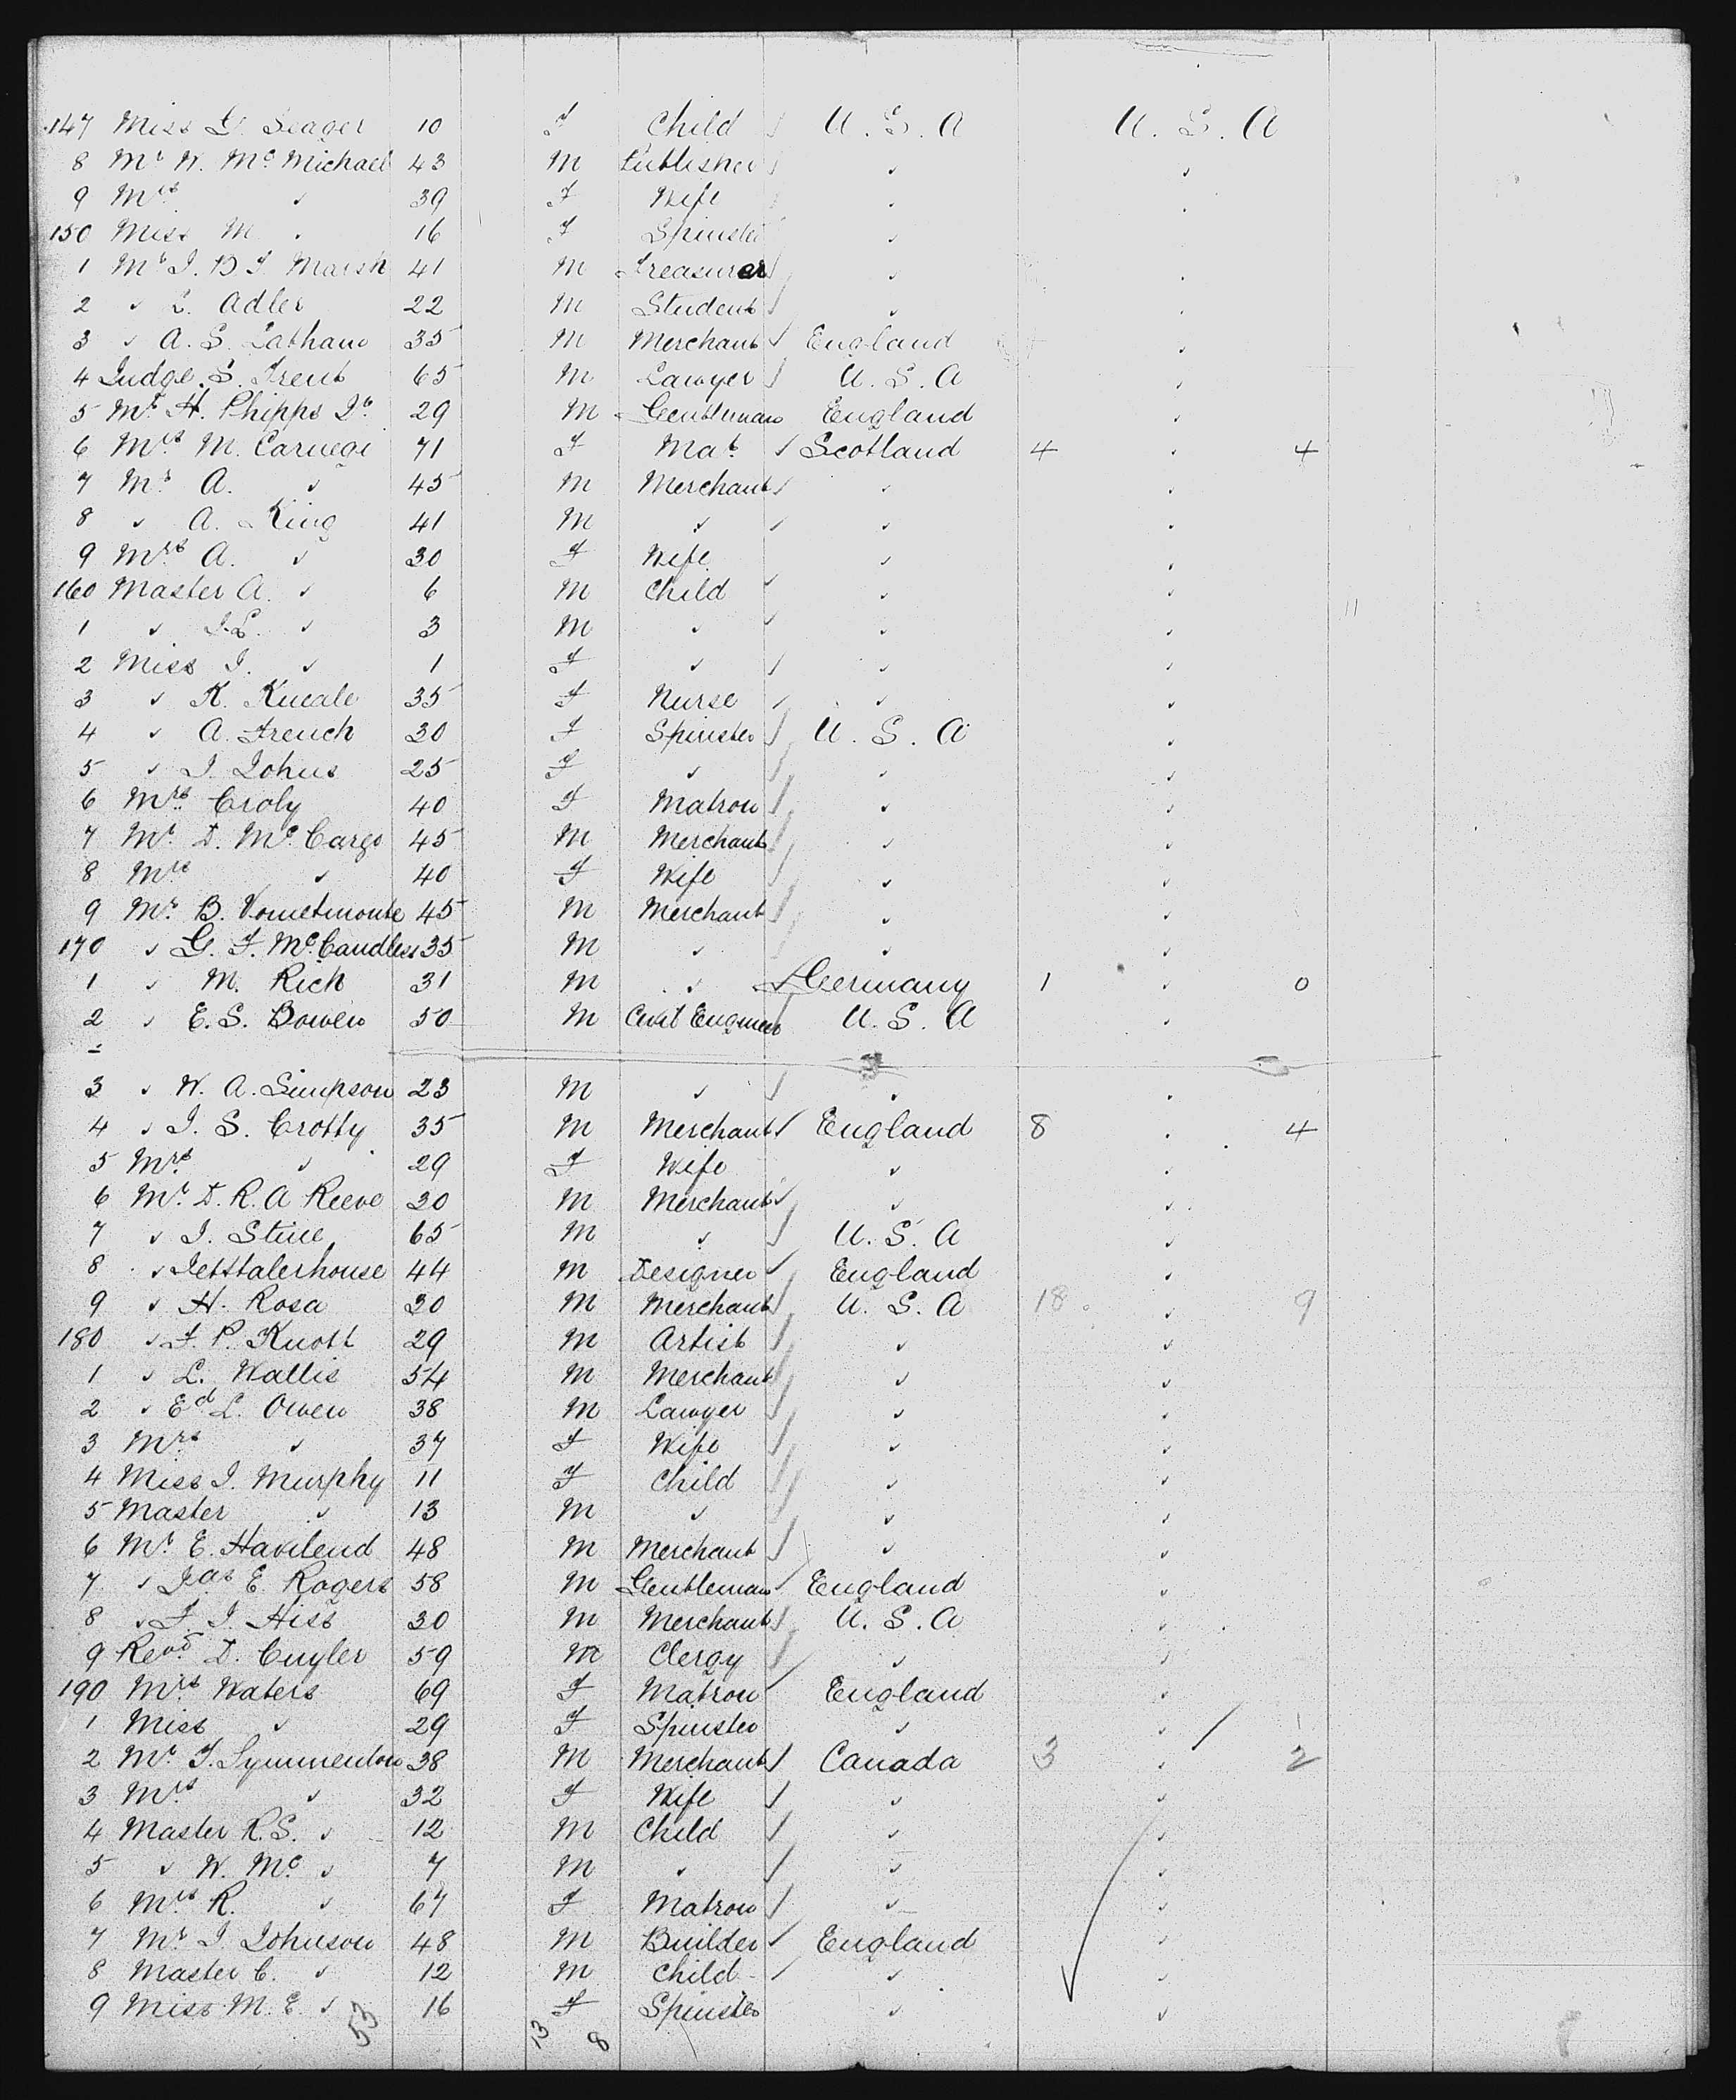 147 Miss G. Seager 10 F Child U.S.A U.S.A
8 Mr W. McMichael 43 M Publisher ✓ ✓
9 Mrs ✓ 39 F Wife ✓ ✓
150 Miss M ✓ 16 F Spinster ✓ ✓
1 Mr J. B. J. Marsh 41 M Treasurer ✓ ✓
2 ✓ L. Adler 22 M Student ✓ ✓
3 ✓ A. S. Latham 35 M Merchant England ✓
4 Judge S. Trent 65 M Lawyer U.S.A ✓
5 Mr H. Phipps Jr. 29 M Gentleman England ✓
6 Mrs M. Carnegi 71 F Mat. Scotland 4 ✓ 4
7 Mr A. ✓ 45 M Merchant ✓ ✓
8 ✓ A. King 41 M ✓ ✓ ✓
9 Mrs A. ✓ 30 F Wife ✓ ✓
160 Master A. ✓ 6 M Child ✓ ✓
1 ✓ J.L. ✓ 3 M ✓ ✓ ✓
2 Miss J. ✓ 1 F ✓ ✓ ✓
3 ✓ K. Kneale 35 F Nurse ✓ ✓
4 ✓ A. French 30 F Spinster U.S.A ✓
5 ✓ J. Johns 25 F ✓ ✓ ✓
6 Mrs Croly 40 F Matron ✓ ✓
7 Mr D. McCargo 45 M Merchant ✓ ✓
8 Mrs ✓ 40 F Wife ✓ ✓
9 Mr B. 45 M Merchant ✓ ✓
170 ✓ G. F. McCandless 35 M ✓ ✓ ✓
1 ✓ M. Rich 31 M ✓ Germany 1 ✓ 0
2 ✓ E. S. Bowen 50 M Civil Engineer U.S.A ✓
3 ✓ W. A. Simpson 23 M ✓ ✓ ✓
4 ✓ J. S. Crotty 35 M Merchant England 8 ✓ 4
5 Mrs ✓ 29 F Wife ✓ ✓
6 Mr D. R. A Reeve 30 M Merchant ✓ ✓
7 ✓ J. Stine 65 M ✓ U.S.A ✓
8 ✓ 44 M Designer England ✓
9 ✓ H. Rosa 30 M Merchant U.S.A 18 ✓ 9
180 ✓ F. P. Knott 29 M Artist ✓ ✓
1 ✓ L. Wallis 54 M Merchant ✓ ✓
2 ✓ Ed L. Owen 38 M Lawyer ✓ ✓
3 Mrs ✓ 37 F Wife ✓ ✓
4 Miss J. Murphy 11 F Child ✓ ✓
5 Master ✓ 13 M ✓ ✓ ✓
6 Mr E. Havilend 48 M Merchant ✓ ✓
7 ✓ Jas E. Rogers 58 M Gentleman England ✓
8 ✓ F. J. Hiss 30 M Merchant U.S.A ✓
9 Revd D. Cuyler 59 M Clergy ✓ ✓
190 Mrs Waters 69 F Matron England ✓
1 Miss ✓ 29 F Spinster ✓ ✓
2 Mr F. Symmenton 38 M Merchant Canada 3 ✓ 2
3 Mrs ✓ 32 F Wife ✓ ✓
4 Master R.S. ✓ 12 M Child ✓ ✓
5 ✓ W. Mc ✓ 7 M ✓ ✓ ✓
6 Mrs R. ✓ 67 F Matron ✓ ✓
7 Mr J. Johnson 48 M Builder England ✓
8 Master C. ✓ 12 M Child ✓ ✓
9 Miss M. E. ✓ 16 F Spinster ✓ ✓
53 13 8